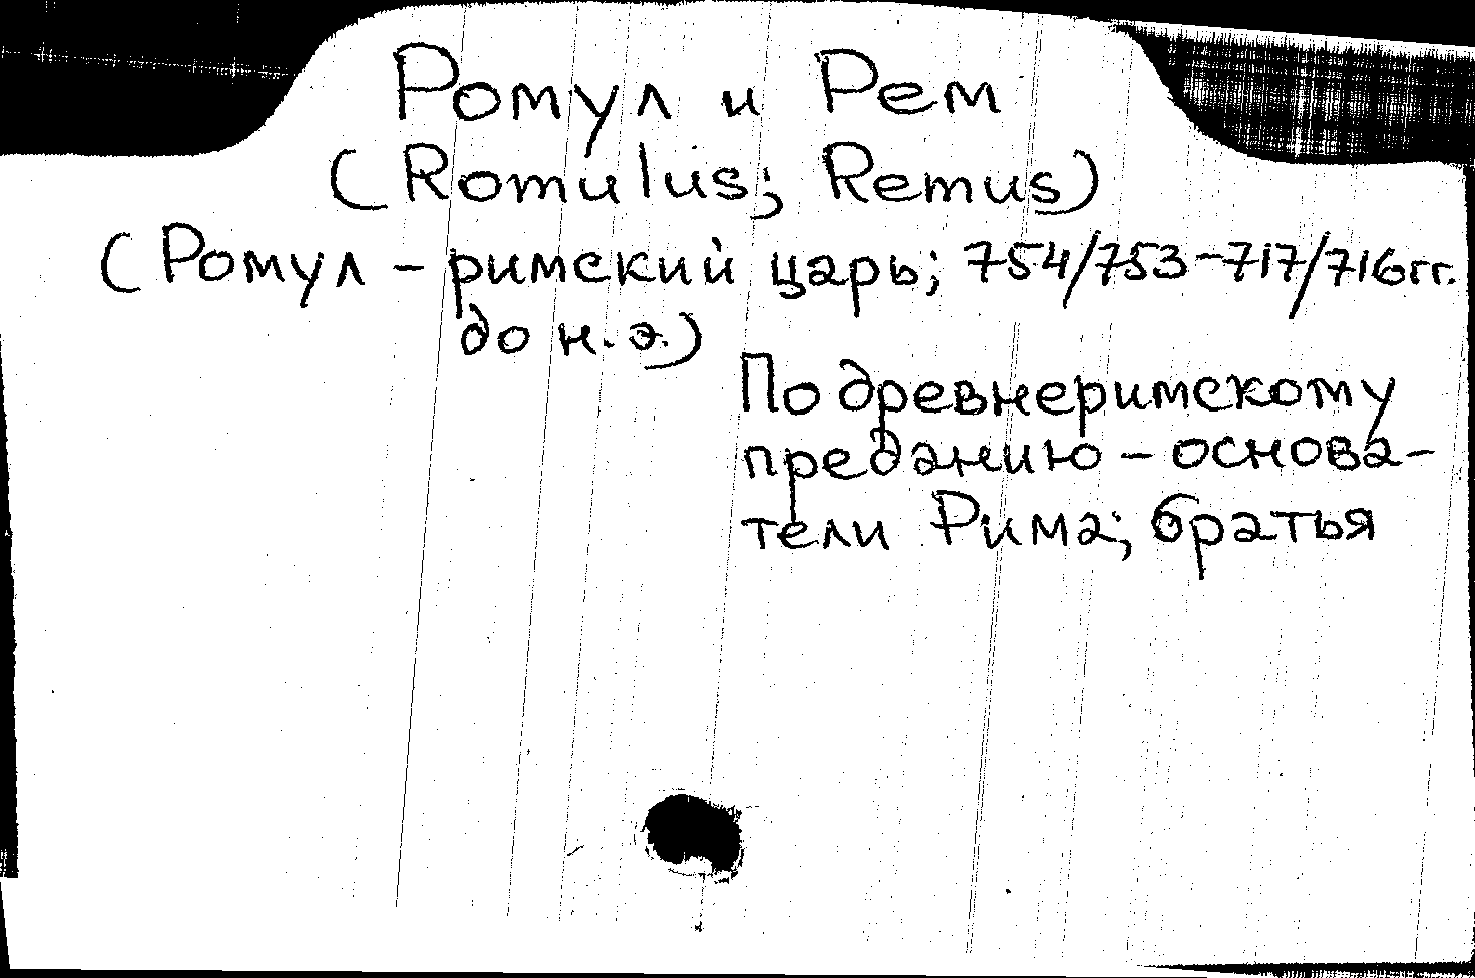 Ромул и Рем
(Romulus; Remus)
(Ромул – римский царь; 754/753–717/716 гг.
до н.э.)
По древнеримскому
преданию – основа-
тели Рима; братья